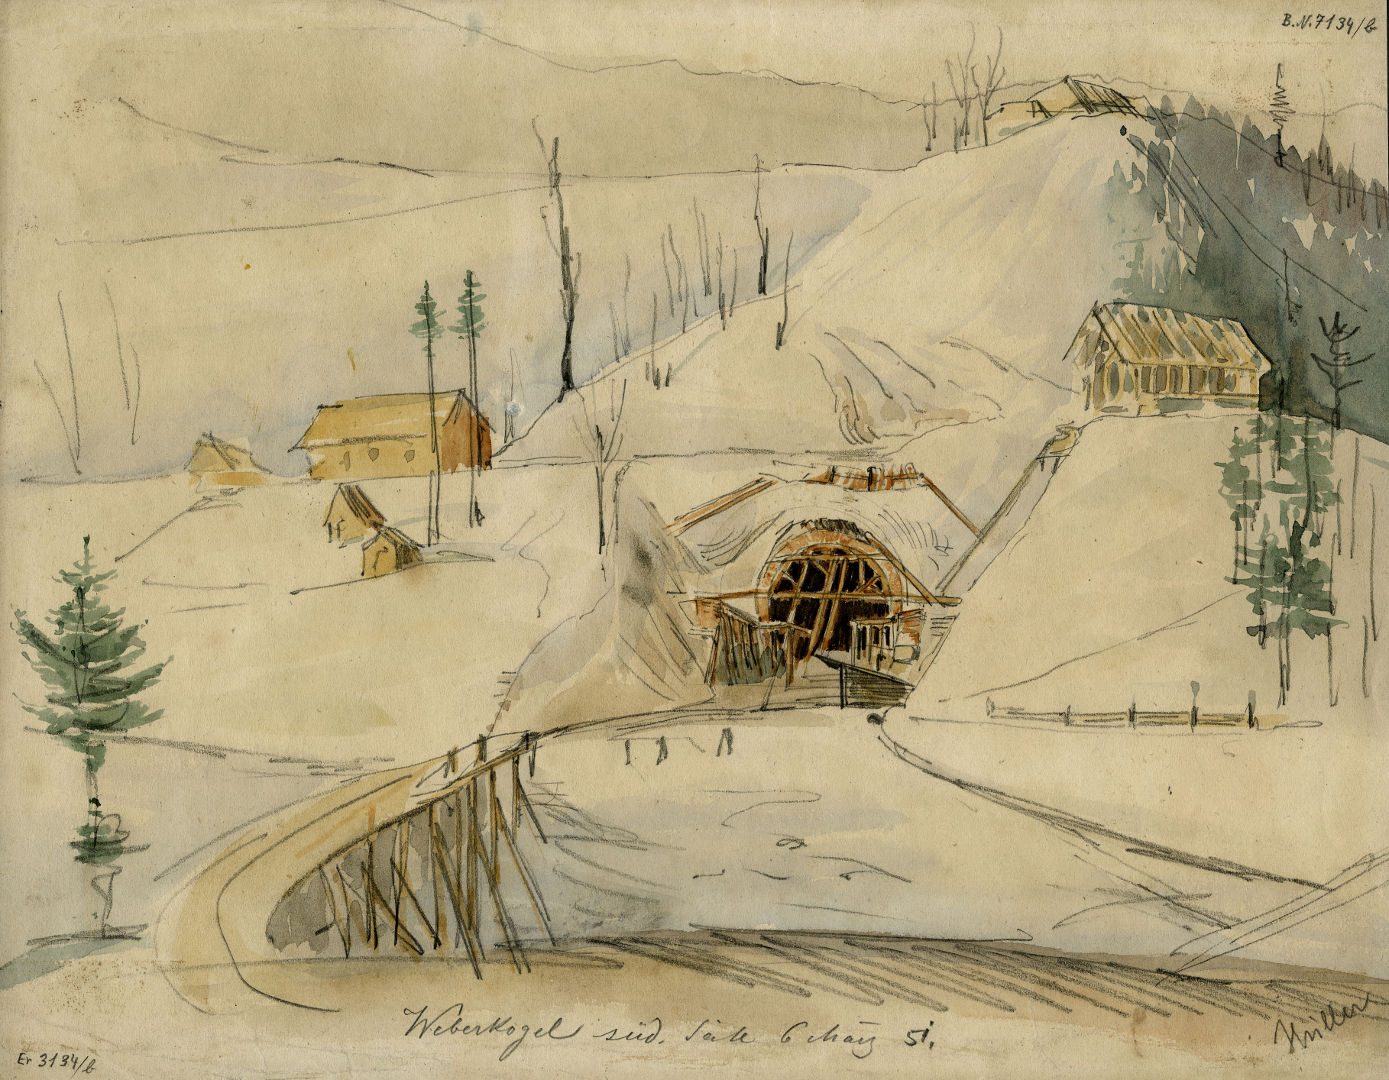 B.N. 7134/b
Weberkogel süd. Seite 6 März 51.
Er 3134/b